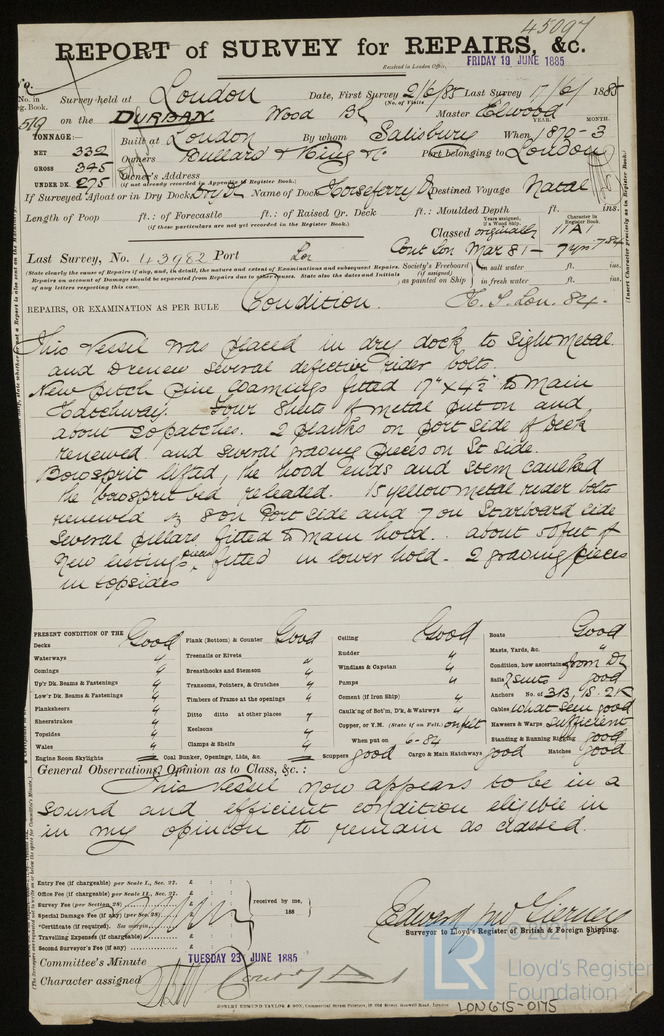 45097
REPORT of SURVEY for REPAIRS, &c.
Received in London Office, FRIDAY 19 JUNE 1885
No. in Reg. Book. Survey held at London Date, First Survey 2/6/85 Last Survey 17/6/1885
(No. of Visits)
519 on the DURBAN Wood Bk Master Elwood
YEAR. MONTH.
TONNAGE:— Built at London By whom Salisbury When 1870-3
NET 332 Owners Bullard & King & Co Port belonging to London
GROSS 345 Owner's Address
UNDER DK. 275 (if not already recorded in Appendix to Register Book.)
If Surveyed Afloat or in Dry Dock Dry Dk Name of Dock Horseferry Dk Destined Voyage Natal
Length of Poop ft.: of Forecastle ft.: of Raised Qr. Deck ft.: Moulded Depth ft. ins.
(if these particulars are not yet recorded in the Register Book.)
Years assigned, if a Ship. Character in Register Book.
Classed originally 11 A1
Last Survey, No. 43982 Port Lon Cont Lon Mar 81 – 7 yrs 7.84
(State clearly the cause of Repairs if any, and, in detail, the nature and extent of Examinations and subsequent Repairs.
Repairs on account of Damage should be separated from Repairs due to other causes. State also the dates and Initials
of any letters respecting this case.
Society's Freeboard (if assigned) as painted on Ship in salt water ft. ins.
in fresh water ft. ins.
REPAIRS, OR EXAMINATION AS PER RULE Condition. H.S. Lon. 84.
This Vessel was placed in dry dock to sight metal
and renew several defective rider bolts.
New pitch pine Coamings fitted 17" x 4½" to main
Hatchway. Four Sheets of metal put on and
about 30 patches. 2 planks on port side of deck
renewed and several graving pieces on St side.
Bowsprit lifted, the hood ends and stem caulked
the bowsprit bed releaded. 15 yellow metal rider bolts
renewed 8 on Port side and 7 on Starboard side
Several pillars fitted to main hold. about 50 feet of
New listings pieces fitted in lower hold. 2 graving pieces
in topsides
PRESENT CONDITION OF THE
Decks Good
Waterways "
Comings "
Up'r Dk. Beams & Fastenings "
Low'r Dk. Beams & Fastenings "
Planksheers "
Sheerstrakes "
Topsides "
Wales "
Engine Room Skylights
Plank (Bottom) & Counter Good
Treenails or Rivets "
Breasthooks and Stemson "
Transoms, Pointers, & Crutches "
Timbers of Frame at the openings "
Ditto ditto at other places "
Keelsons "
Clamps & Shelfs "
Coal Bunker, Openings, Lids, &c.
Ceiling Good
Rudder "
Windlass & Capstan "
Pumps "
Cement (if Iron Ship)
Caulk'ng of Bot'm, D'k, & Watrwys "
Copper, or Y.M. (State if on Felt.) on felt
When put on 6-84
Scuppers good Cargo & Main Hatchways good Hatches good
Boats Good
Masts, Yards, &c. "
Condition, how ascertained from Dk
Sails 2 suits good
Anchors No. of 3B, 1S, 2K
Cables what seen good
Hawsers & Warps Sufficient
Standing & Running Rigging good
General Observations, Opinion as to Class, &c. :
This Vessel now appears to be in a
sound and efficient condition eligible in
in my opinion to remain as classed.
Entry Fee (if chargeable) per Scale I., Sec. 27. £ : :
Office Fee (if chargeable) per Scale II., Sec. 27. £ : :
Survey Fee (per Section 28) £ : :
Special Damage Fee (if any) (per Sec. 28) £ : :
*Certificate (if required). See margin. £ : :
Travelling Expenses (if chargeable) £ : :
Second Surveyor's Fee (if any) £ : :
received by me, 188
Surveyor to Lloyd's Register of British & Foreign Shipping.
Committee's Minute TUESDAY 23 JUNE 1885
Character assigned
ROBERT EDMUND TAYLOR & SON, Commercial Steam Printers, 19 Old Street, Goswell Road, London
© 2021
LR
Lloyd's Register
Foundation
LON675-0175